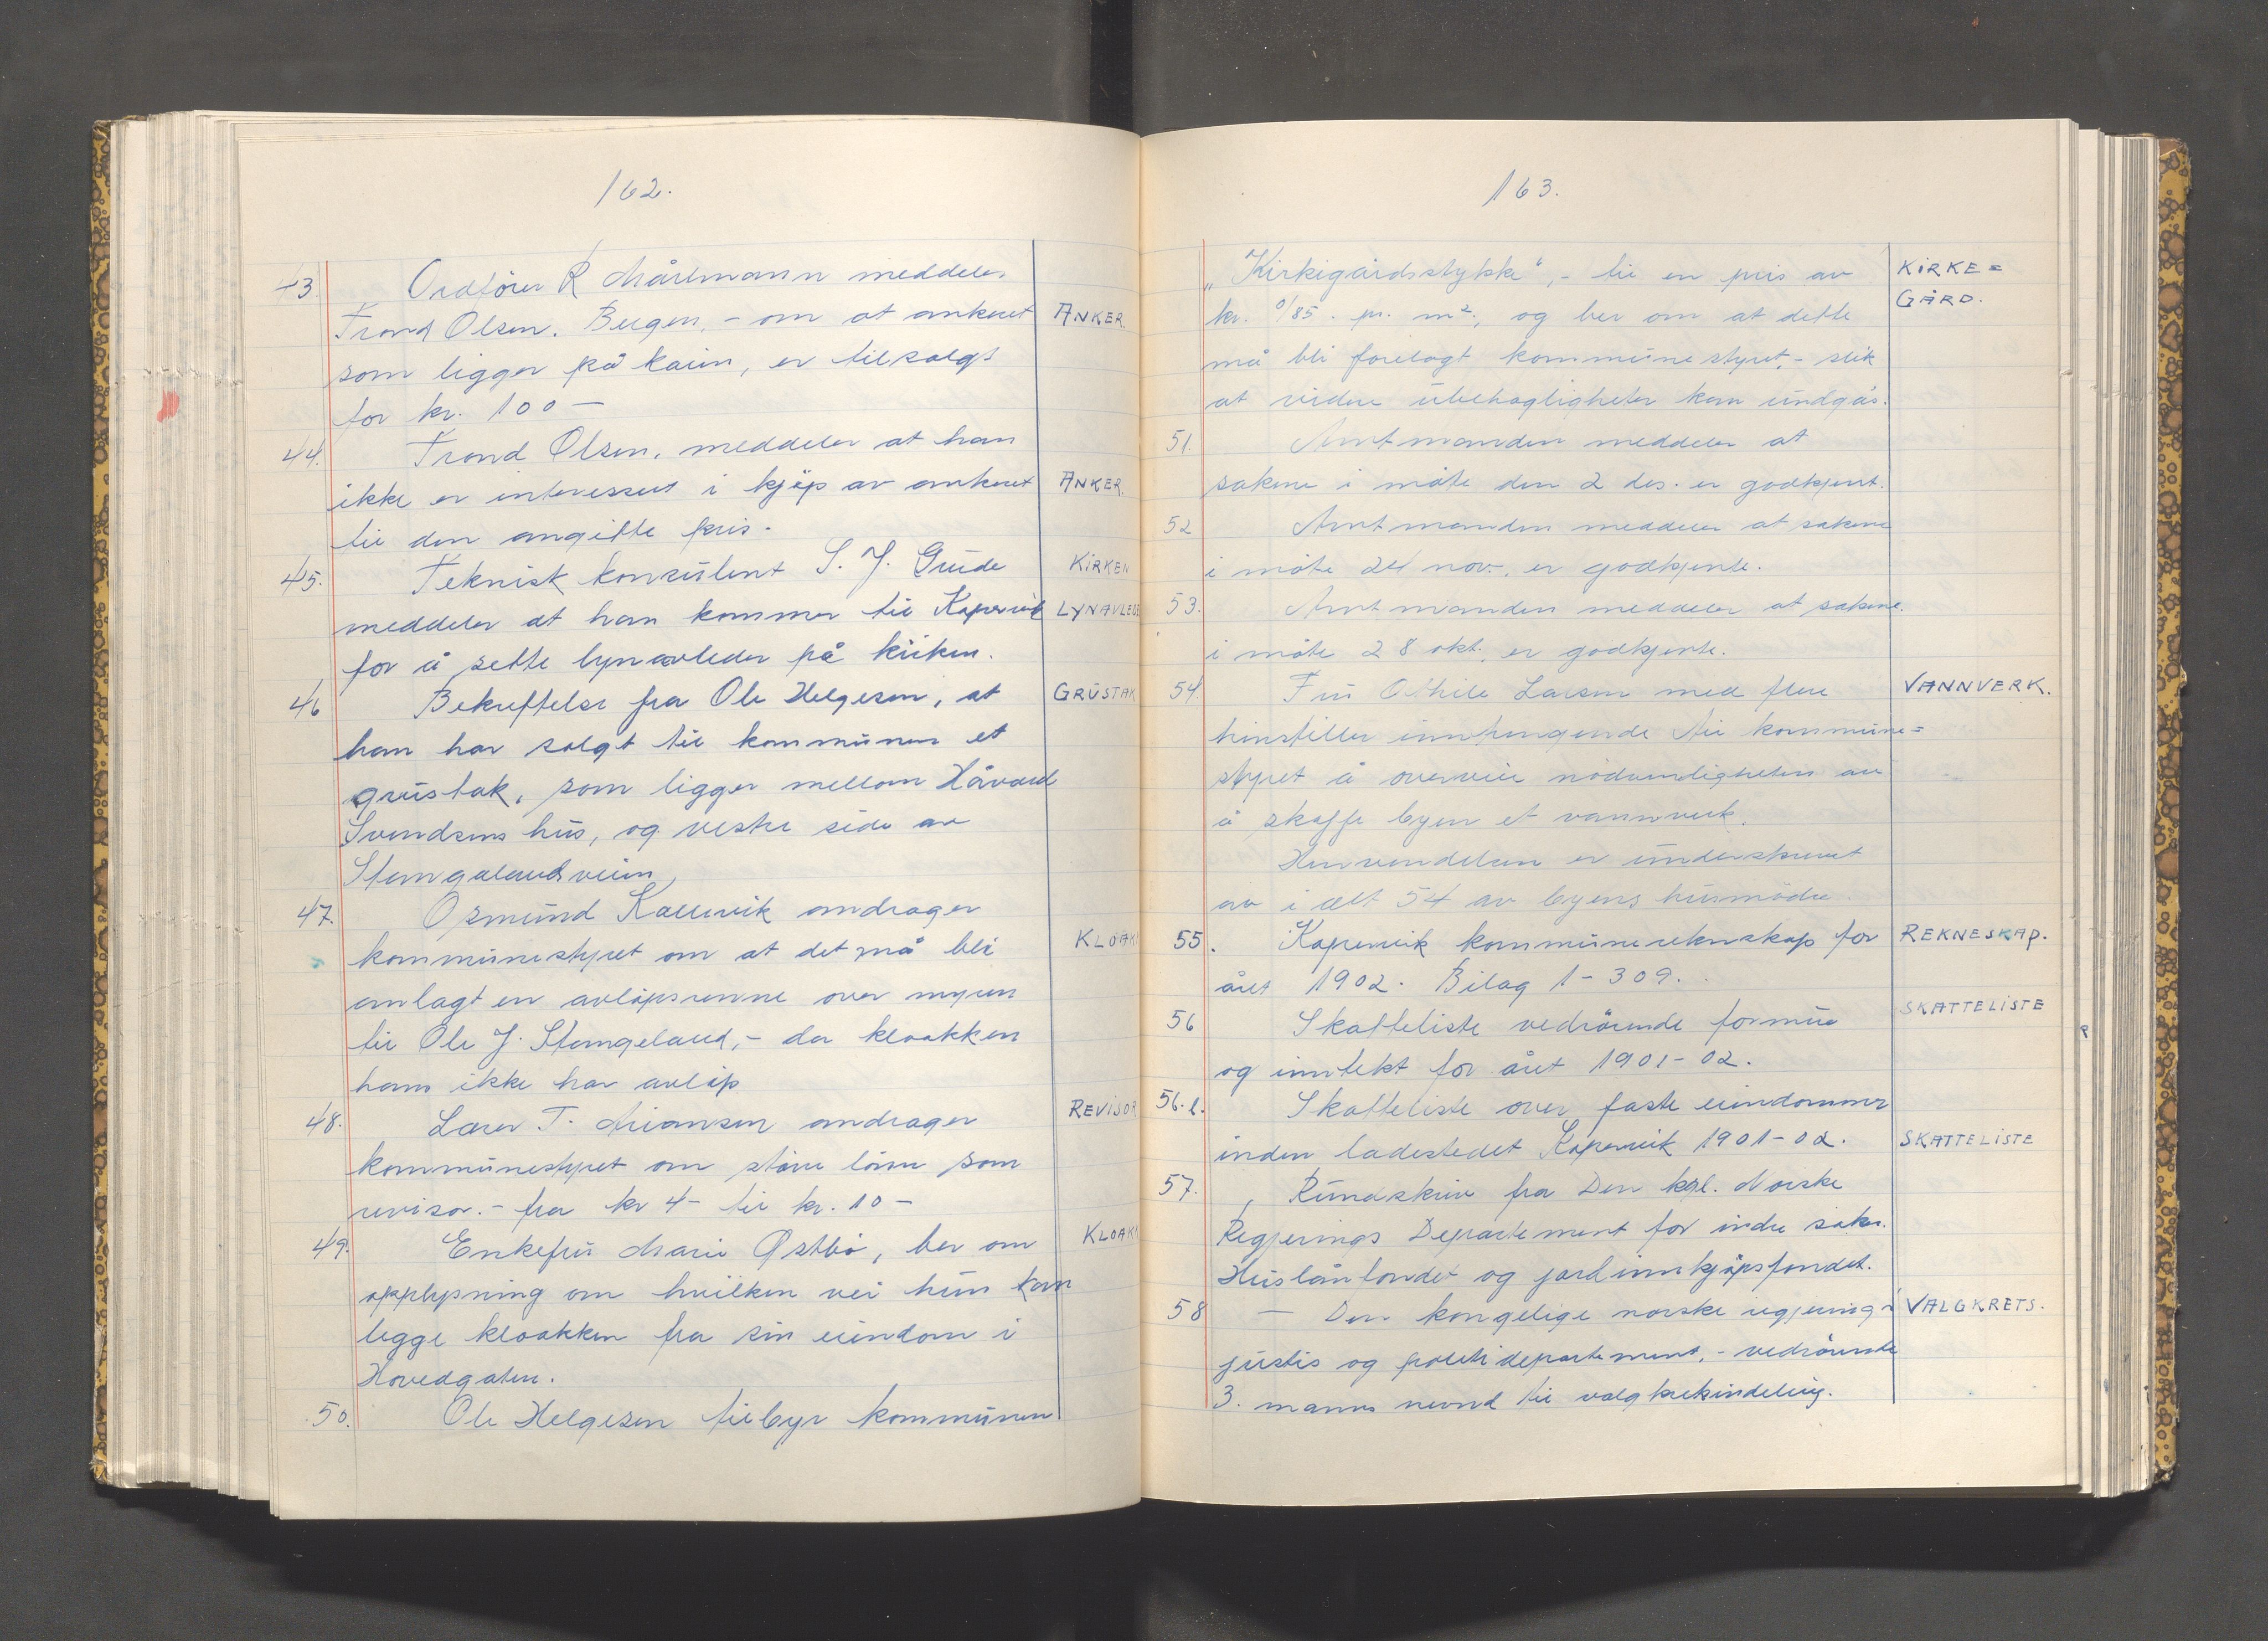 162.
43. Ordfører R Mårtmann meddeler
Trond Olsen. Bergen, - om at ankeret ANKER.
som ligger på kaien, er tilsalgs
for kr. 100 -
44. Trond Olsen, meddeler at han
ikke er interessert i kjøp av ankeret ANKER.
til den angitte pris.
45. Teknisk konsulent S. J. Gude KIRKEN
meddeler at han kommer til Kopervik LYNAVLEDE
for å sette lynavleder på kirken.
46 Bekreftelse fra Ole Helgesen, at GRUSTAK
han har solgt til kommunen et
grustak, som ligger mellom Håvard
Svendsens hus, og vestre side av
Stangelandsveien
47. Osmund Kallevik andrager
kommunestyret om at det må bli KLOAK
anlagt en avløpsrenne over myren
til Ole J. Stangeland, - da kloakken
hans ikke har avløp
48. Lærer T. Miansen andrager REVISOR
kommunestyret om større lønn som
revisor. - fra kr 4 - til kr. 10 -
49. Enkefru Marie Østbø, ber om KLOAK
opplysning om hvilken vei hun kan
legge kloakken fra sin eiendom i
Hovedgaten.
50. Ole Helgesen tilbyr kommunen
163.
"Kirkigårdsstykke", - til en pris av KIRKE=
kr. 0/85. pr. m². og ber om at dette GÅRD.
må bli forelagt kommunestyret, - slik
at videre ubehagligheter kan undgås.
51. Amtmanden meddeler at
sakene i møte den 2 des. er godkjent.
52 Amtmanden meddeler at sakene
i møte 24 nov. er godkjente.
53. Amtmanden meddeler at sakene.
i møte 28 okt. er godkjente.
54. Fru Othile Larsen med flere VANNVERK.
henstiller inntrengende til kommune=
styret å overveie nødvendigheten av
å skaffe byen et vannverk.
Henvendelsen er underskrevet
av i alt 54 av byens husmødre.
55. Kopervik kommuneregnskap for REKNESKAP.
året 1902. Bilag 1 - 309.
56 Skatteliste vedrørende formue SKATTELISTE
og inntekt for året 1901 - 02.
56. b. Skatteliste over faste eiendommer
inden ladestedet Kopervik 1901 - 02. SKATTELISTE
57. Rundskriv fra Den kgl. Norske
Regjerings Departement for indre saker.
Huslånfondet og jordinnkjøpsfondet.
58 - Den kongelige norske regjerings VALGKRETS.
justis og politidepartement, - vedrørende
3. manns nevnd til valgkretsindeling.